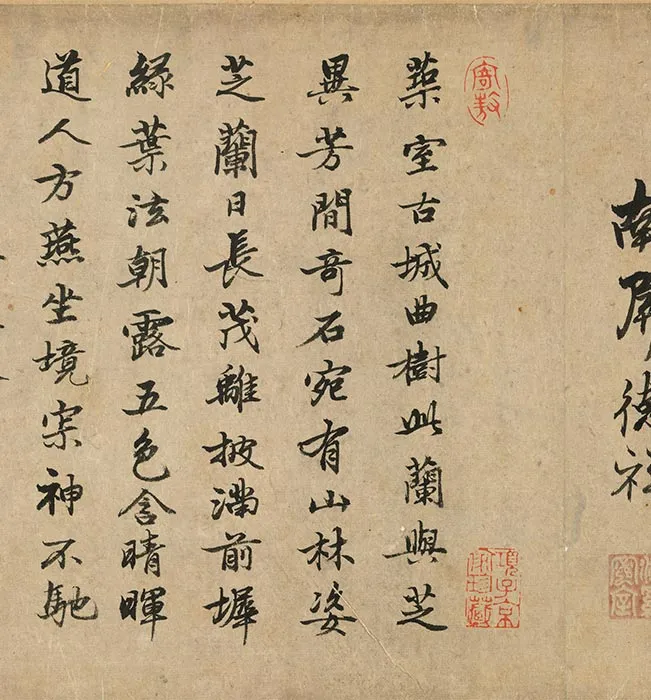 南屏德祥
築室古城曲樹此蘭與芝
異芳間奇石宛有山林姿
芝蘭日長茂離披滿前墀
綠葉泫朝露五色含晴暉
道人方燕坐境寂神不馳
項子京家珍藏